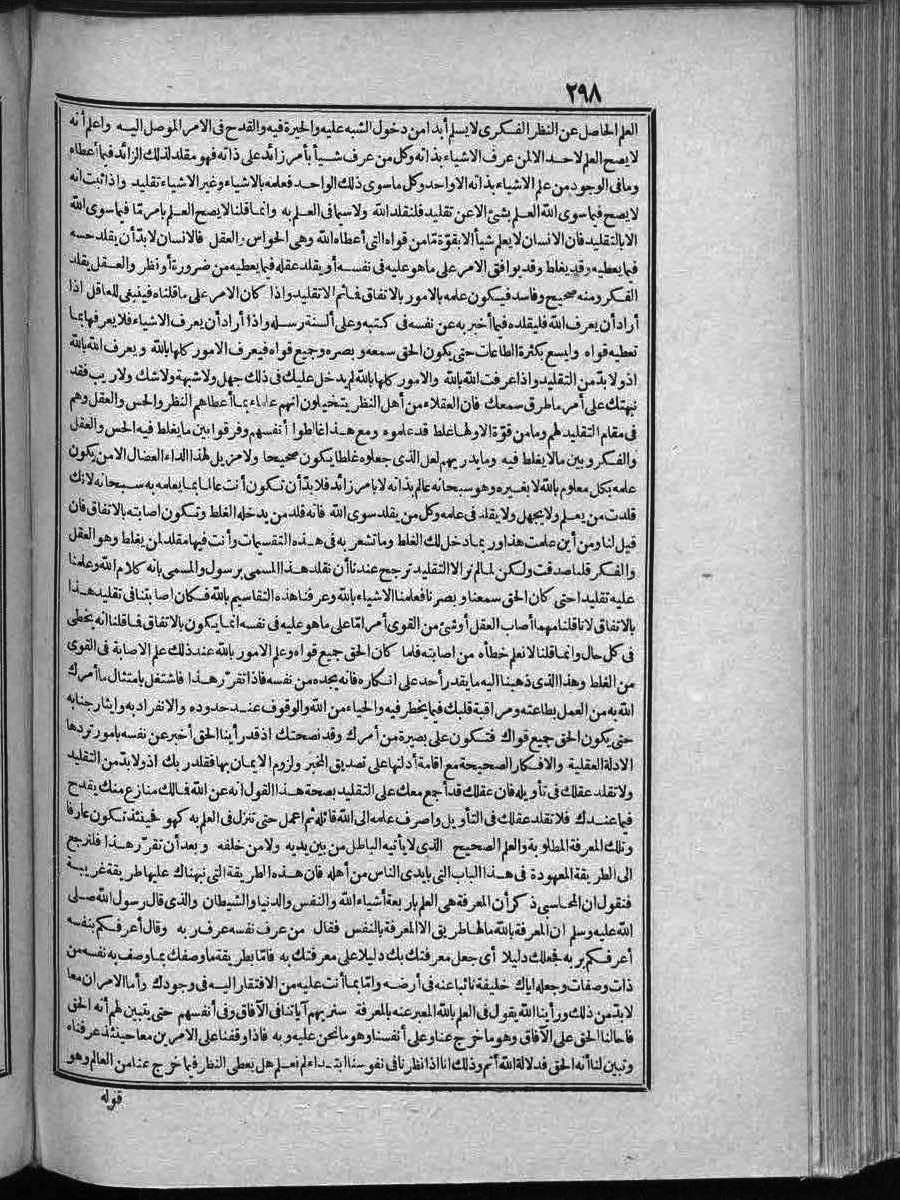 ٢٩٨
العلم الحاصل عن النظر الفكرى لا يسلم أبدا من دخول الشبه عليه والحيرة فيه والقدح فى الامر الموصل اليه واعلم أنه
لا يصح العلم لاحد الا لمن عرف الاشياء بذاته وكل من عرف شيأ بأمر زائد على ذاته فهو مقلد لذلك الزائد فيما أعطاه
وما فى الوجود من علم الاشياء بذاته الا واحد وكل ما سوى ذلك الواحد فعلمه بالاشياء وغير الاشياء تقليد واذا ثبت انه
لا يصح فيما سوى الله العلم بشئ الا عن تقليد فلنقلد الله ولا سيما فى العلم به وانما قلنا لا يصح العلم بامر ما فيما سوى الله
الا بالتقليد فان الانسان لا يعلم شيأ الا بقوّة مّا من قواه التى أعطاه الله وهى الحواس والعقل فالانسان لا بدّ أن يقلد حسه
فيما يعطيه وقد يغلط وقد يوافق الامر على ما هو عليه فى نفسه أو يقلد عقله فيما يعطيه من ضرورة أو نظر والعقل يقلد
الفكر ومنه صحيح وفاسد فيكون علمه بالامور بالاتفاق فما ثم الا تقليد واذا كان الامر على ما قلناه فينبغى للعاقل اذا
أراد أن يعرف الله فليقلده فيما أخبر به عن نفسه فى كتبه وعلى ألسنة رسله واذا أراد أن يعرف الاشياء فلا يعرفها بما
تعطيه قواه وليسع بكثرة الطاعات حتى يكون الحق سمعه و بصره وجميع قواه فيعرف الامور كلها بالله و يعرف الله بالله
اذ ولا بدّ من التقليد واذا عرفت الله بالله والامور كلها بالله لم يدخل عليك فى ذلك جهل ولا شبهة ولا شك ولا ريب فقد
نبهتك على أمر ما طرق سمعك فان العقلاء من أهل النظر يتخيلون انهم علماء بما أعطاهم النظر والحس والعقل وهم
فى مقام التقليد لهم وما من قوّة الا ولها غلط قد علموه ومع هذا غالطوا أنفسهم وفرقوا بين ما يغلط فيه الحس والعقل
والفكر و بين ما لا يغلط فيه وما يدريهم لعل الذى جعلوه غلطا يكون صحيحا ولا مزيل لهذا الداء العضال الا من يكون
علمه بكل معلوم بالله لا بغيره وهو سبحانه عالم بذاته لا بامر زائد فلا بدّ أن تكون أنت عالما بما يعلمه به سبحانه لانك
قلدت من يعلم ولا يجهل ولا يقلد فى علمه وكل من يقلد سوى الله فانه قلد من يدخله الغلط وتكون اصابته بالاتفاق فان
قيل لنا ومن أين علمت هذا وربما دخل لك الغلط وما تشعر به فى هذه التقسيمات وأنت فيها مقلد لمن يغلط وهو العقل
والفكر قلنا صدقت ولكن لما لم نر الا التقليد ترجح عندنا أن نقلد هذا المسمى برسول والمسمى بانه كلام الله وعملنا
عليه تقليدا حتى كان الحق سمعنا و بصرنا فعلمنا الاشياء بالله وعرفنا هذه التقاسيم بالله فكان اصابتنا فى تقليد هذا
بالاتفاق لانا قلنا مهما أصاب العقل أو شئ من القوى أمر امّا على ما هو عليه فى نفسه انما يكون بالاتفاق فما قلنا انه يخطى
فى كل حال وانما قلنا لا نعلم خطأه من اصابته فلما كان الحق جميع قواه وعلم الامور بالله عند ذلك علم الاصابة فى القوى
من الغلط وهذا الذى ذهبنا اليه ما يقدر أحد على انكاره فانه يجده من نفسه فاذا تقرّر هذا فاشتغل بامتثال ما أمرك
الله به من العمل بطاعته ومراقبة قلبك فيما يخطر فيه والحياء من الله والوقوف عند حدوده والانفراد به وايثار جنابه
حتى يكون الحق جميع قواك فتكون على بصيرة من أمرك وقد نصحتك اذ قد رأينا الحق أخبر عن نفسه بامور تردها
الادلة العقلية والافكار الصحيحة مع اقامة أدلتها على تصديق المخبر ولزوم الايمان بها فقلد ربك اذ ولا بدّ من التقليد
ولا تقلد عقلك فى تأويله فان عقلك قد أجمع معك على التقليد بصحة هذا القول انه عن الله فمالك منازع منك يقدح
فيما عندك فلا تقلد عقلك فى التأويل واصرف علمه الى الله قائله ثم اعمل حتى تنزل فى العلم به كهو فحينئذ تكون عارفا
وتلك المعرفة المطلوبة والعلم الصحيح الذى لا يأتيه الباطل من بين يديه ولا من خلفه و بعد أن تقرّر هذا فلنرجع
الى الطريقة المعهودة فى هذا الباب التى بايدى الناس من أهله فان هذه الطريقة التى نبهناك عليها طريقة غريبة
فنقول ان المحاسبى ذكر أن المعرفة هى العلم بار بعة أشياء الله والنفس والدنيا والشيطان والذى قال رسول الله صلى
الله عليه وسلم ان المعرفة بالله ما لها طريق الا المعرفة بالنفس فقال من عرف نفسه عرف ربه وقال أعرفكم بنفسه
أعرفكم بربه فجعلك دليلا أى جعل معرفتك بك دليلا على معرفتك به فامّا بطريقة ما وصفك بما وصف به نفسه من
ذات وصفات وجعله اياك خليفة نائبا عنه فى أرضه وامّا بما أنت عليه من الافتقار اليه فى وجودك وأما الامران معا
لا بدّ من ذلك ورأينا الله يقول فى العلم بالله المعبر عنه بالمعرفة سنريهم آياتنا فى الآفاق وفى أنفسهم حتى يتبين لهم أنه الحق
فاحالنا الحق على الآفاق وهو ما خرج عنا وعلى أنفسنا وهو ما نحن عليه و به فاذا وقفنا على الامرين معا حينئذ عرفناه
وتبين لنا أنه الحق فدلالة الله أتم وذلك انا اذا نظرنا فى نفوسنا ابتداء لم نعلم هل يعطى النظر فيما خرج عنا من العالم وهو
قوله